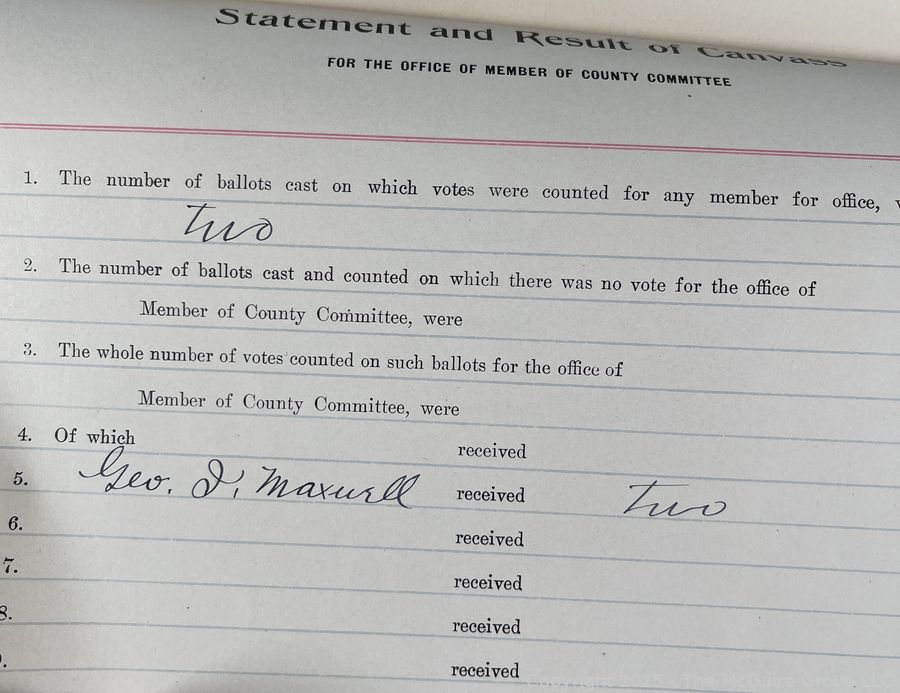 Statement and Result of Canvass
FOR THE OFFICE OF MEMBER OF COUNTY COMMITTEE
1. The number of ballots cast on which votes were counted for any member for office,
Two
2. The number of ballots cast and counted on which there was no vote for the office of
Member of County Committee, were
3. The whole number of votes counted on such ballots for the office of
Member of County Committee, were
4. Of which received
5. Geo. I. Maxwell received Two
6. received
7. received
8. received
received